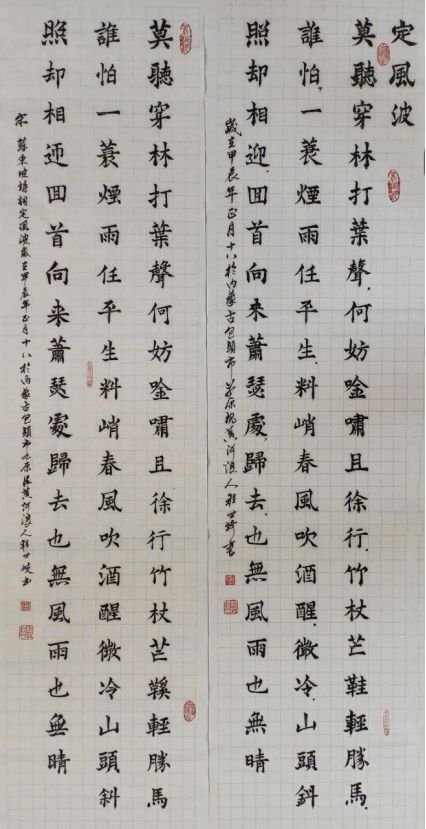 定風波
莫聽穿林打葉聲,何妨唫嘯且徐行.竹杖芒鞋輕勝馬.
誰怕,一蓑煙雨任平生.料峭春風吹酒醒.微冷.山頭斜
照却相迎.囬首向来蕭瑟處.歸去.也無風雨也無晴
歲在甲辰年正月十八於内蒙古包頭市九原 黄河浪人程世 書
莫聽穿林打葉聲何妨唫嘯且徐行竹杖芒鞵輕勝馬
誰怕一蓑煙雨任平生料峭春風吹酒醒微冷山頭斜
照却相迎囬首向来蕭瑟處歸去也無風雨也無晴
宋 蘇東坡詩詞定風波歲在甲辰年正月十八於内蒙古包頭市九原區黄河浪人程世 書